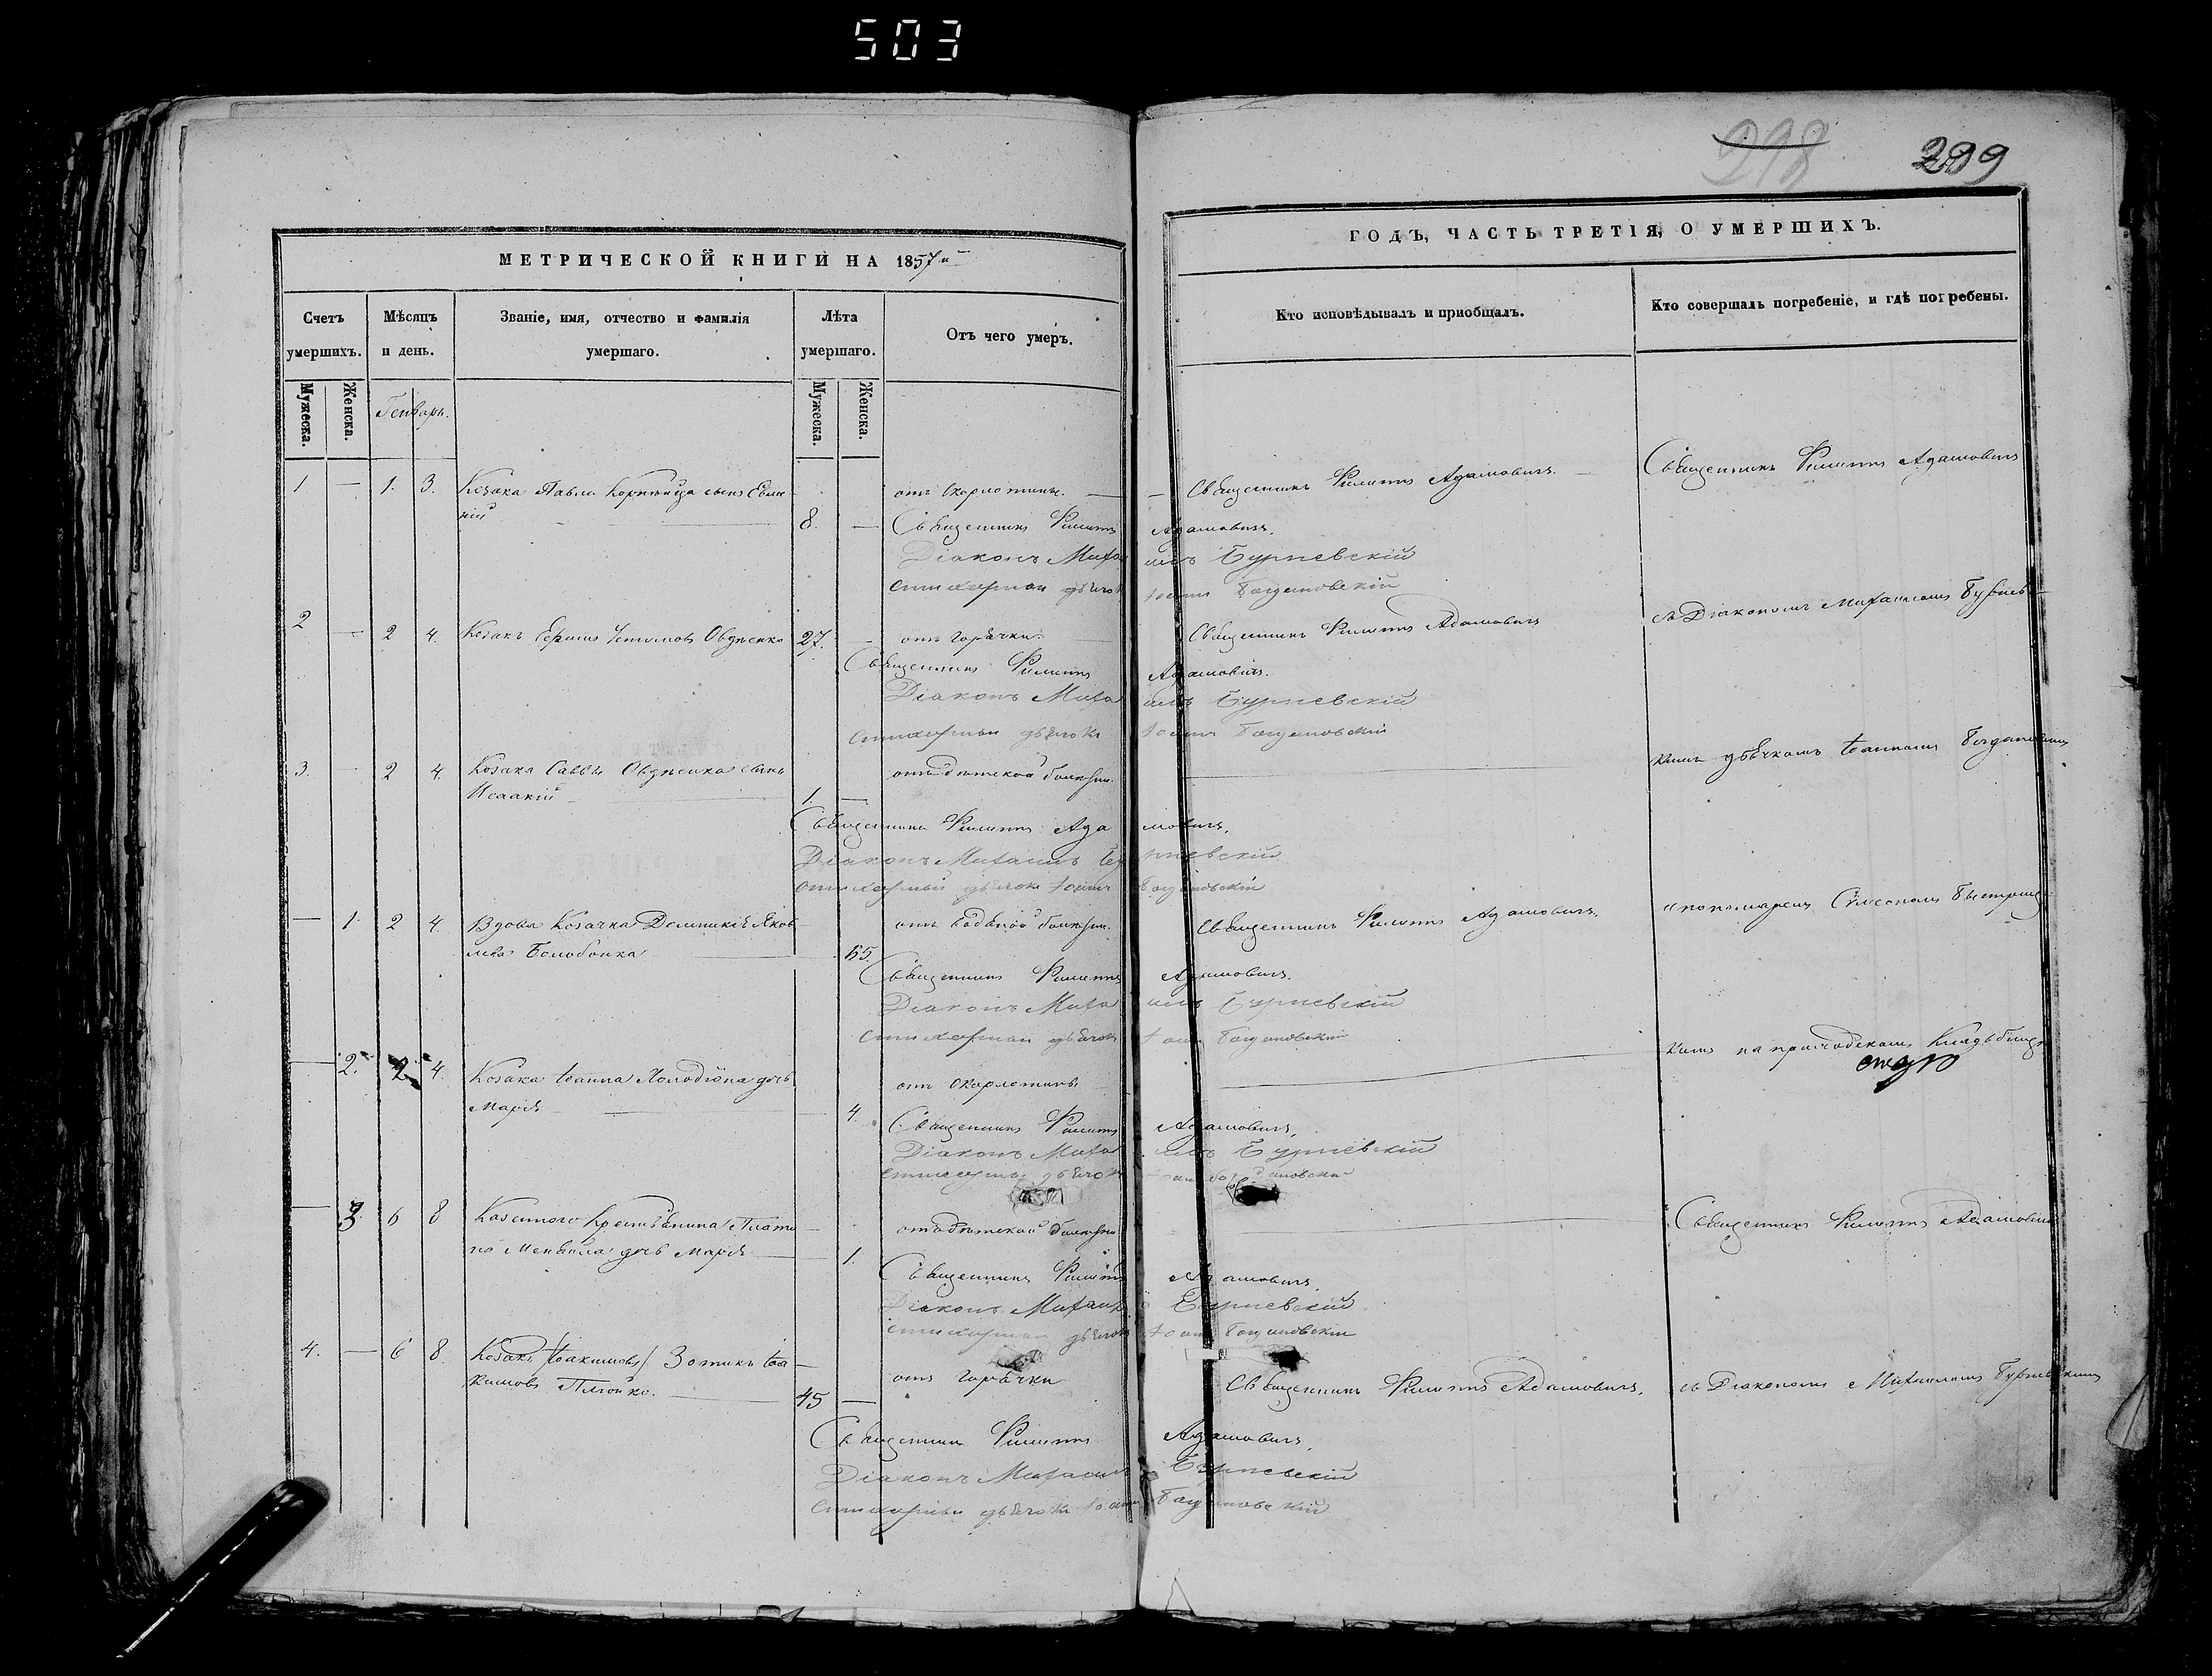 503
298
299
МЕТРИЧЕСКОЙ КНИГИ НА 1857й
ГОДЪ, ЧАСТЬ ТРЕТІЯ, О УМЕРШИХЪ.
Счетъ умершихъ.
Мѣсяцъ и день.
Званіе, имя, отчество и фамилія умершаго.
Лѣта умершаго.
Отъ чего умеръ.
Кто исповѣдывалъ и приобщалъ.
Кто совершалъ погребеніе, и гдѣ погребены.
Мужеска.
Женска.
Генварь.
Мужеска.
Женска.
1 — 1. 3. Козака Павла сынъ
8. —
отъ скарлотины. — Священникъ Филиппъ Адамовичъ. — Священникъ Филиппъ Адамовичъ
Священникъ Филиппъ Адамовичъ.
Діаконъ Михаилъ Бурневскій
Стихарный дьячокъ Іоаннъ Богдановскій
2 — 2 4. Козакъ 27. — отъ горячки. Священникъ Филиппъ Адамовичъ съ Діакономъ Михаиломъ Бурнев-
Священникъ Филиппъ Адамовичъ.
Діаконъ Михаилъ Бурневскій
Стихарный дьячокъ Іоаннъ Богдановскій
3. — 2 4. Козака Саввы Овдѣенка сынъ отъ дѣтской болѣзни. — кимъ дьячкомъ Іоанномъ Богдановскимъ
Исаакій — 1. —
Священникъ Филиппъ Адамовичъ.
Діаконъ Михаилъ Бурневскій
Стихарный дьячокъ Іоаннъ Богдановскій
— 1. 2 4. Вдова Козачка Домникія Яков- отъ болѣзни. Священникъ Филиппъ Адамовичъ. и пономаремъ
лева — 65.
Священникъ Филиппъ Адамовичъ.
Діаконъ Михаилъ Бурневскій
Стихарный дьячокъ Іоаннъ Богдановскій
— 2. 2 4. Козака Іоанна дочь отъ скарлотины — кимъ на приходскомъ Кладбищѣ
Марія — 4.
Священникъ Филиппъ Адамовичъ.
Діаконъ Михаилъ Бурневскій
Стихарный дьячокъ Іоаннъ Богдановскій
— 3. 6 8 Казенного Крестьянина Плато- отъ дѣтской болѣзни — Священникъ Филиппъ Адамовичъ
на дочь Марія — 1.
Священникъ Филиппъ Адамовичъ.
Діаконъ Михаилъ Бурневскій
Стихарный дьячокъ Іоаннъ Богдановскій
4. — 6 8. Козакъ /Іоакимовъ/ Зотикъ Іоа- отъ горячки Священникъ Филиппъ Адамовичъ. съ Діакономъ Михаиломъ Бурневскимъ
кимовъ — 45 —
Священникъ Филиппъ Адамовичъ.
Діаконъ Михаилъ Бурневскій
Стихарный дьячокъ Іоаннъ Богдановскій